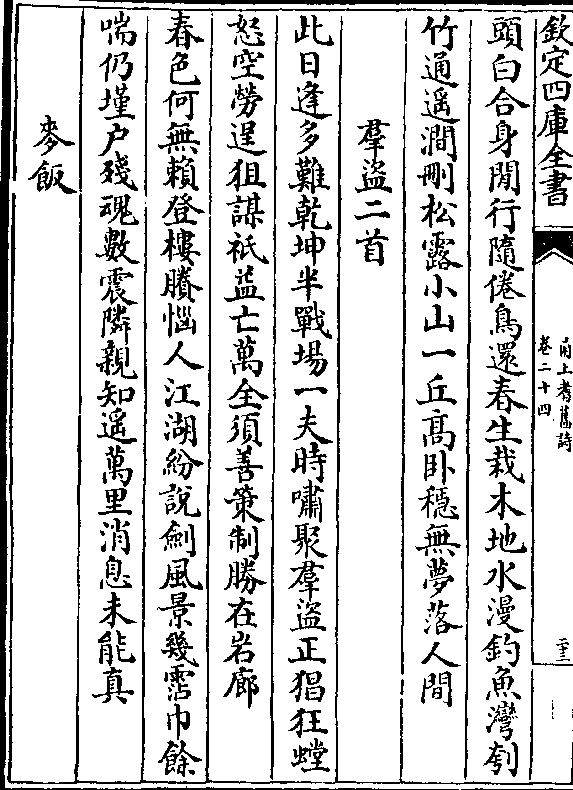 欽定四庫全書
甬上耆舊詩
卷二十四
二十三
頭白合身閒行隨倦鳥還春生栽木地水漫釣魚灣刳
竹通遥澗刪松露小山一丘髙卧穩無夢落人間
羣盜二首
此日逢多難乾坤半戰場一夫時嘯聚羣盜正猖狂螳
怒空勞逞狙謀祇益亡萬全須善策制勝在岩廊
春色何無賴登樓賸惱人江湖紛說劍風景幾霑巾餘
喘仍墐户殘魂數震隣親知遥萬里消息未能真
麥飯